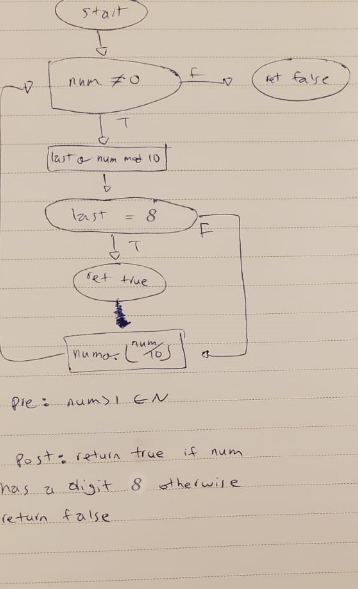 start
num ≠ 0
F
ret false
T
last ← num mod 10
last = 8
F
T
ret true
num ← ⌊num/10⌋
pre: num>1 ∈ N
Post: return true if num
has a digit 8 otherwise
return false